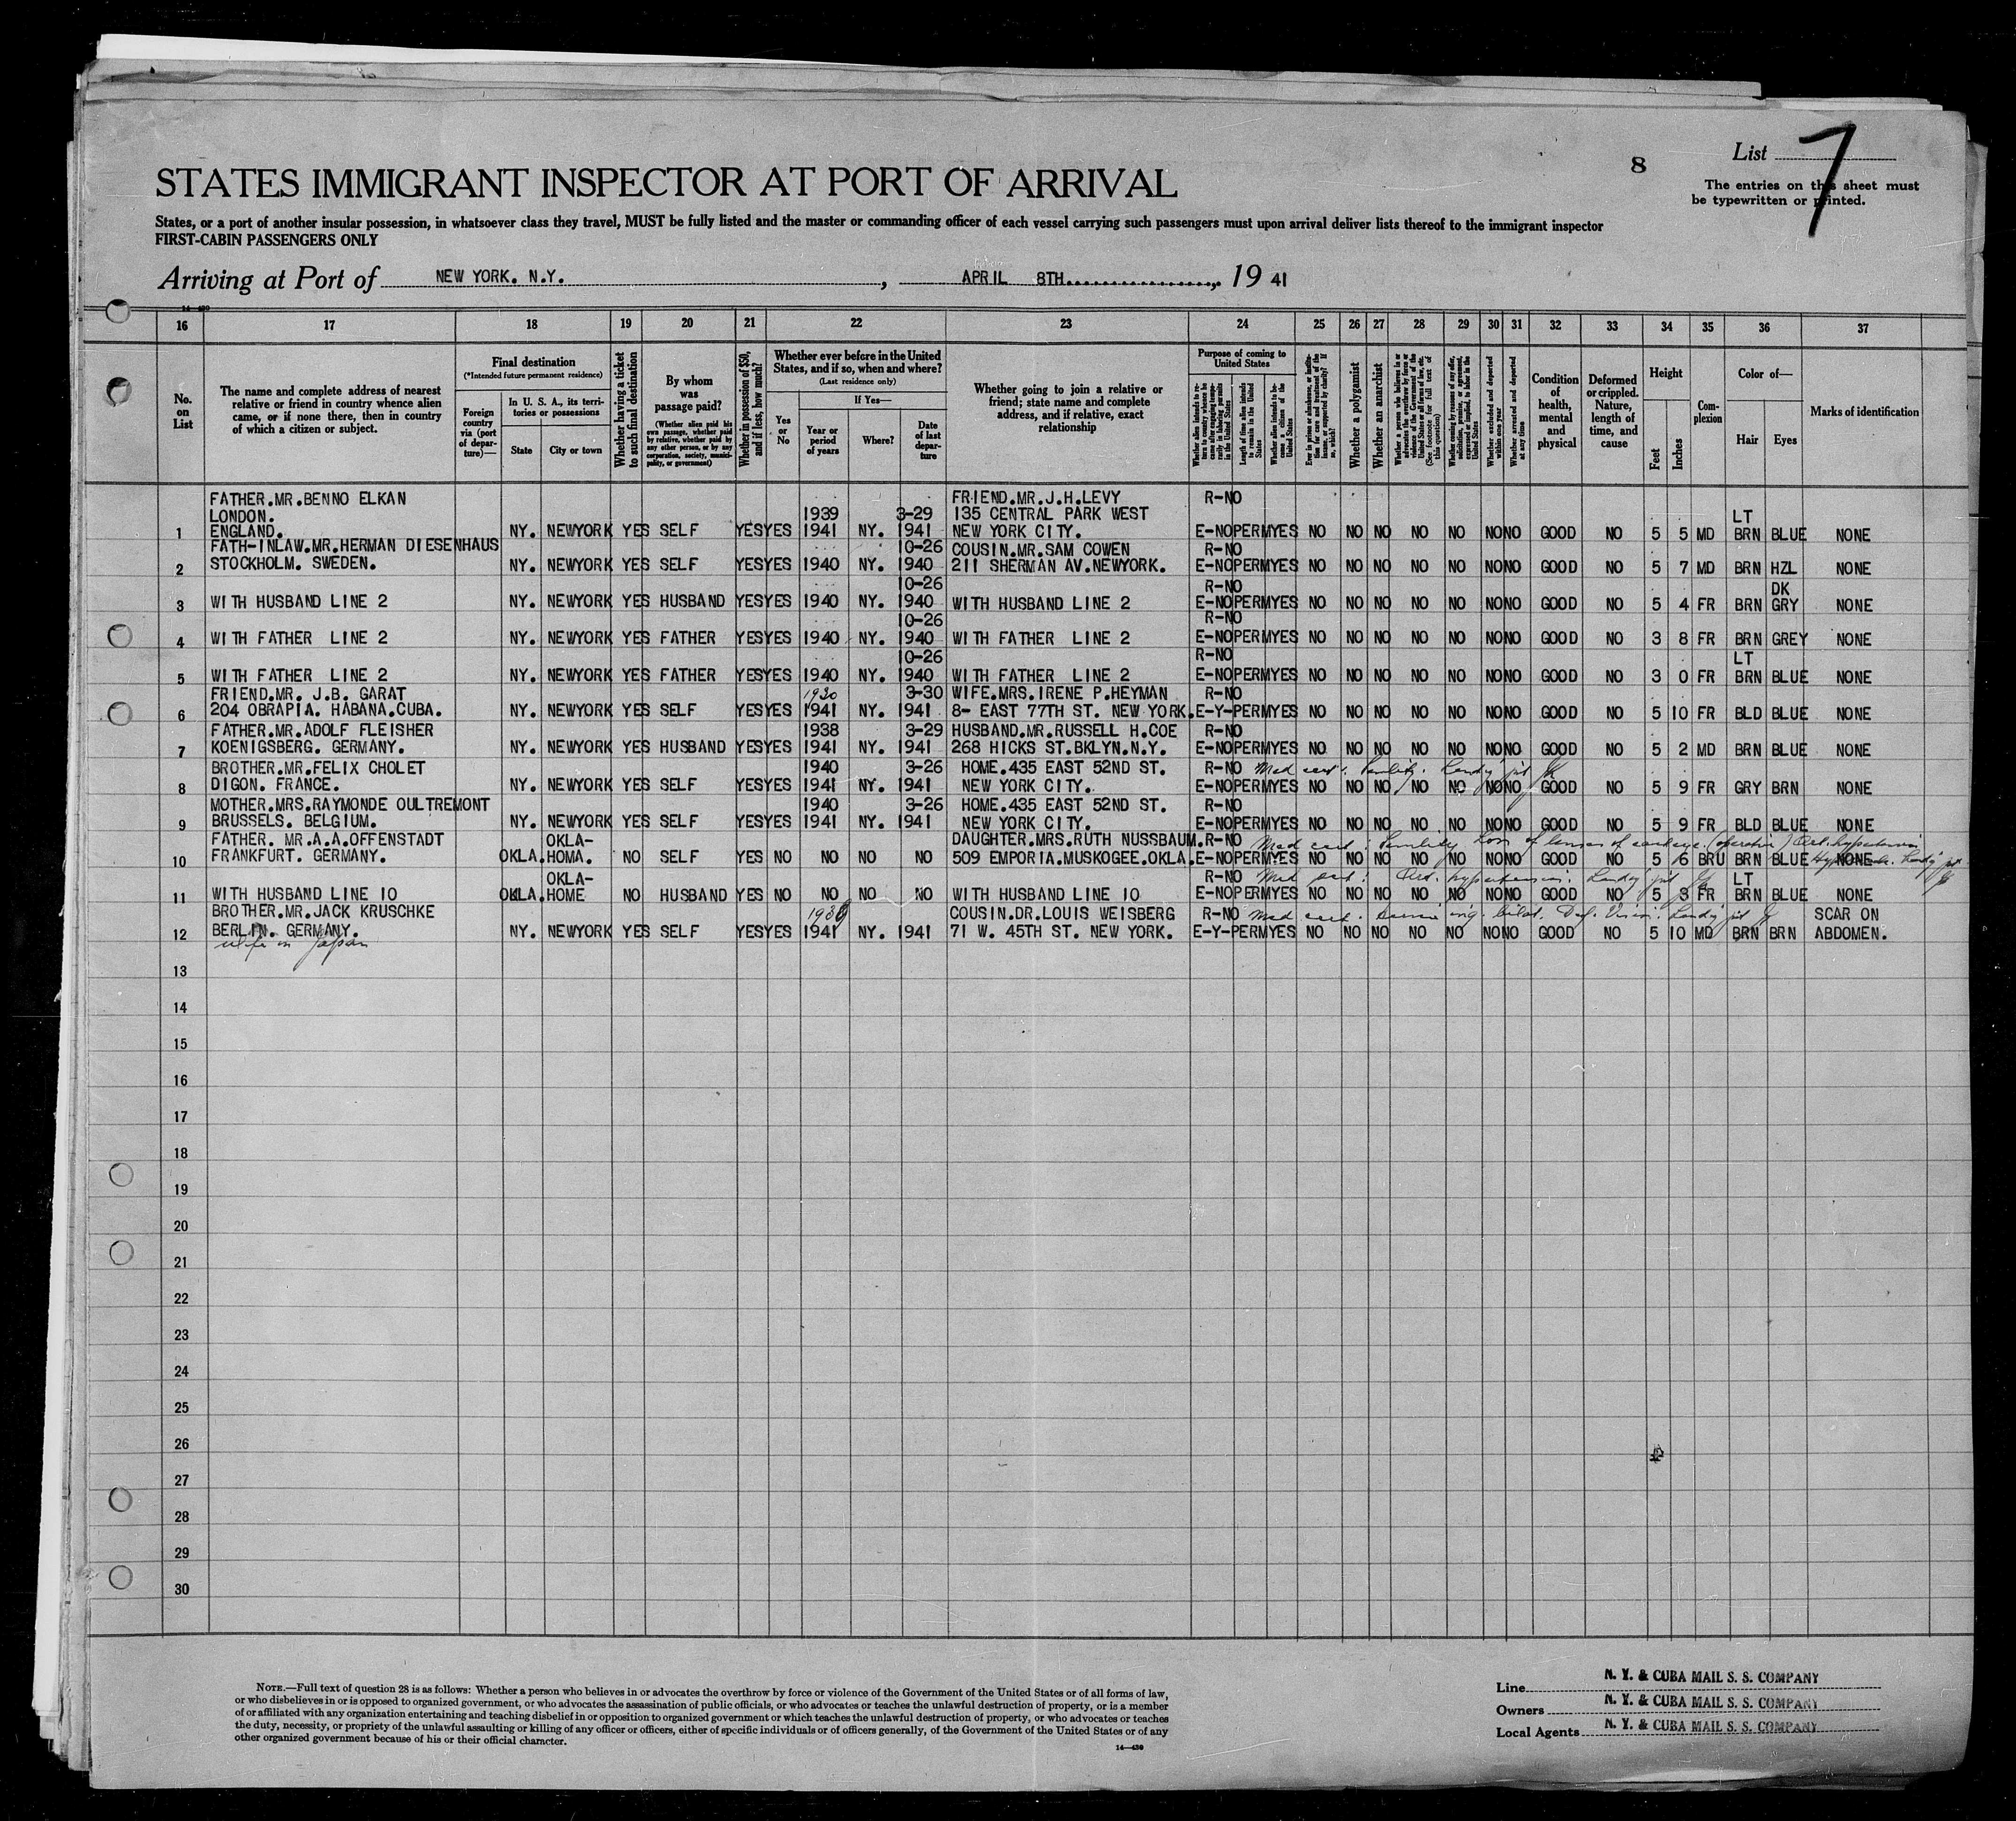 8
List 7
The entries on this sheet must
be typewritten or printed.
STATES IMMIGRANT INSPECTOR AT PORT OF ARRIVAL
States, or a port of another insular possession, in whatsoever class they travel, MUST be fully listed and the master or commanding officer of each vessel carrying such passengers must upon arrival deliver lists thereof to the immigrant inspector
FIRST-CABIN PASSENGERS ONLY
Arriving at Port of NEW YORK. N.Y., APRIL 8TH, 19 41
14—430
16 17 18 19 20 21 22 23 24 25 26 27 28 29 30 31 32 33 34 35 36 37
No. on List
The name and complete address of nearest relative or friend in country whence alien came, or if none there, then in country of which a citizen or subject.
Final destination
(*Intended future permanent residence)
Foreign country via (port of departure)—
In U. S. A., its territories or possessions
State
City or town
Whether having a ticket to such final destination
By whom was passage paid?
(Whether alien paid his own passage, whether paid by relative, whether paid by any other person, or by any corporation, society, municipality, or government)
Whether in possession of $50, and if less, how much?
Whether ever before in the United States, and if so, when and where?
(Last residence only)
Yes or No
If Yes—
Year or period of years
Where?
Date of last departure
Whether going to join a relative or friend; state name and complete address, and if relative, exact relationship
Purpose of coming to United States
Length of time alien intends to remain in the United States
Whether alien intends to become a citizen of the United States
Whether a polygamist
Whether an anarchist
(See footnote for full text of this question)
Whether excluded and deported within one year
Whether arrested and deported at any time
Condition of health, mental and physical
Deformed or crippled. Nature, length of time, and cause
Height
Feet
Inches
Complexion
Color of—
Hair
Eyes
Marks of identification
FATHER.MR.BENNO ELKAN FRIEND.MR.J.H.LEVY R-NO
LONDON. 1939 3-29 135 CENTRAL PARK WEST LT
1 ENGLAND. NY. NEWYORK YES SELF YES YES 1941 NY. 1941 NEW YORK CITY. E-NO PERM YES NO NO NO NO NO NO NO GOOD NO 5 5 MD BRN BLUE NONE
FATH-INLAW.MR.HERMAN DIESENHAUS 10-26 COUSIN.MR.SAM COWEN R-NO
2 STOCKHOLM. SWEDEN. NY. NEWYORK YES SELF YES YES 1940 NY. 1940 211 SHERMAN AV.NEWYORK. E-NO PERM YES NO NO NO NO NO NO NO GOOD NO 5 7 MD BRN HZL NONE
10-26 R-NO DK
3 WITH HUSBAND LINE 2 NY. NEWYORK YES HUSBAND YES YES 1940 NY. 1940 WITH HUSBAND LINE 2 E-NO PERM YES NO NO NO NO NO NO NO GOOD NO 5 4 FR BRN GRY NONE
10-26 R-NO
4 WITH FATHER LINE 2 NY. NEWYORK YES FATHER YES YES 1940 NY. 1940 WITH FATHER LINE 2 E-NO PERM YES NO NO NO NO NO NO NO GOOD NO 3 8 FR BRN GREY NONE
10-26 R-NO LT
5 WITH FATHER LINE 2 NY. NEWYORK YES FATHER YES YES 1940 NY. 1940 WITH FATHER LINE 2 E-NO PERM YES NO NO NO NO NO NO NO GOOD NO 3 0 FR BRN BLUE NONE
FRIEND.MR. J.B. GARAT 3-30 WIFE.MRS.IRENE P.HEYMAN R-NO
6 204 OBRAPIA. HABANA.CUBA. NY. NEWYORK YES SELF YES YES 1941 NY. 1941 8- EAST 77TH ST. NEW YORK. E-Y-PERM YES NO NO NO NO NO NO NO GOOD NO 5 10 FR BLD BLUE NONE
FATHER.MR.ADOLF FLEISHER 1938 3-29 HUSBAND.MR.RUSSELL H.COE R-NO
7 KOENIGSBERG. GERMANY. NY. NEWYORK YES HUSBAND YES YES 1941 NY. 1941 268 HICKS ST.BKLYN.N.Y. E-NO PERM YES NO NO NO NO NO NO NO GOOD NO 5 2 MD BRN BLUE NONE
BROTHER.MR.FELIX CHOLET 1940 3-26 HOME.435 EAST 52ND ST. R-NO Med cert. Senility.
8 DIGON. FRANCE. NY. NEWYORK YES SELF YES YES 1941 NY. 1941 NEW YORK CITY. E-NO PERM YES NO NO NO NO NO NO NO GOOD NO 5 9 FR GRY BRN NONE
MOTHER.MRS.RAYMONDE OULTREMONT 1940 3-26 HOME.435 EAST 52ND ST. R-NO
9 BRUSSELS. BELGIUM. NY. NEWYORK YES SELF YES YES 1941 NY. 1941 NEW YORK CITY. E-NO PERM YES NO NO NO NO NO NO NO GOOD NO 5 9 FR BLD BLUE NONE
FATHER. MR.A.A.OFFENSTADT OKLA- DAUGHTER.MRS.RUTH NUSSBAUM. R-NO Med cert: Senility Loss of lenses of each eye (operation)
10 FRANKFURT. GERMANY. OKLA. HOMA. NO SELF YES NO NO NO NO 509 EMPORIA.MUSKOGEE.OKLA. E-NO PERM YES NO NO NO NO NO NO NO GOOD NO 5 6 BRU BRN BLUE NONE
OKLA- R-NO Med cert: Art. hypertension. LT
11 WITH HUSBAND LINE 10 OKLA. HOME NO HUSBAND YES NO NO NO NO WITH HUSBAND LINE 10 E-NO PERM YES NO NO NO NO NO NO NO GOOD NO 5 3 FR BRN BLUE NONE
BROTHER.MR.JACK KRUSCHKE COUSIN.DR.LOUIS WEISBERG R-NO Med cert. SCAR ON
12 BERLIN. GERMANY. NY. NEWYORK YES SELF YES YES 1941 NY. 1941 71 W. 45TH ST. NEW YORK. E-Y-PERM YES NO NO NO NO NO NO NO GOOD NO 5 10 MD BRN BRN ABDOMEN.
wife in Japan
13
14
15
16
17
18
19
20
21
22
23
24
25
26
27
28
29
30
NOTE.—Full text of question 28 is as follows: Whether a person who believes in or advocates the overthrow by force or violence of the Government of the United States or of all forms of law,
or who disbelieves in or is opposed to organized government, or who advocates the assassination of public officials, or who advocates or teaches the unlawful destruction of property, or is a member
of or affiliated with any organization entertaining and teaching disbelief in or opposition to organized government or which teaches the unlawful destruction of property, or who advocates or teaches
the duty, necessity, or propriety of the unlawful assaulting or killing of any officer or officers, either of specific individuals or of officers generally, of the Government of the United States or of any
other organized government because of his or their official character.
14—430
Line N. Y. & CUBA MAIL S. S. COMPANY
Owners N. Y. & CUBA MAIL S. S. COMPANY
Local Agents N. Y. & CUBA MAIL S. S. COMPANY